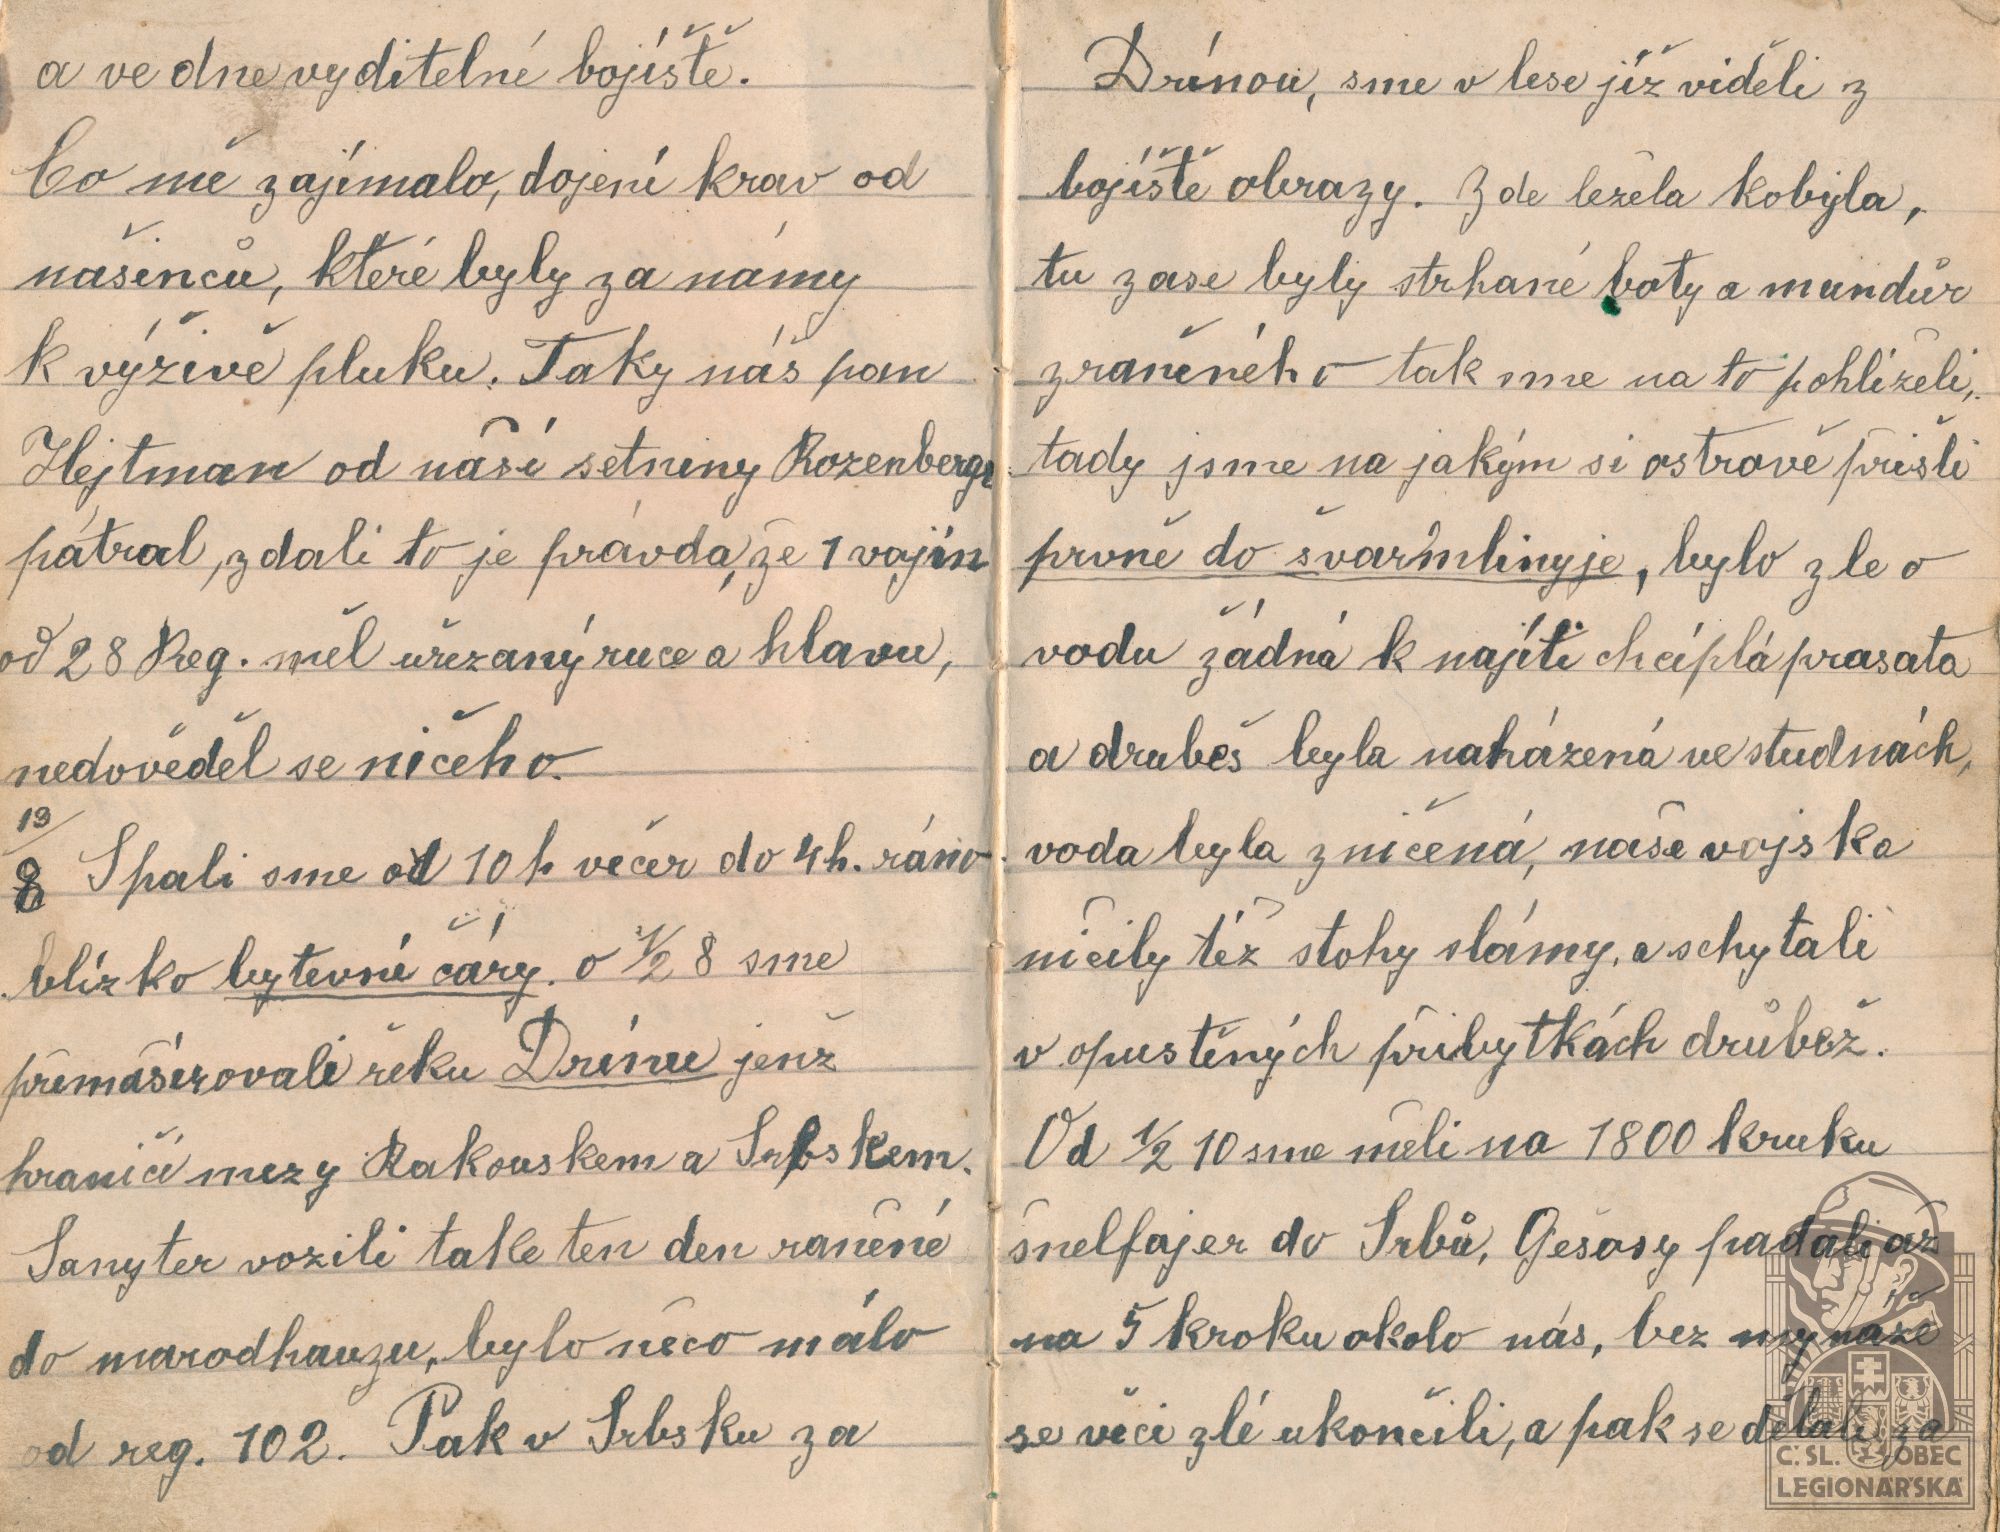 a ve dne vyditelné bojíště.
Co mě zajímalo, dojení krav od
našinců, které byly za námy
k výživě pluku. Taky náš pan
Hejtman od naší setniny Rozenberge
pátral, zdali to je právda, že 1 vojín
od 28 Reg. měl uřezaný ruce a hlavu,
nedověděl se ničeho.
13/8 Spali sme od 10 h večer do 4 h. ráno
blízko bytevní čáry. o 1/2 8 sme
přemášírovali řeku Drínu jenž
hraničí mezy Rakouskem a Srbskem.
Sanyter vozili take ten den raněné
do marodhauzu, bylo něco málo
od reg. 102. Pak v Srbsku za
Drínou, sme v lese již viděli z
bojíště obrazy. Zde ležela kobyla,
tu zase byly strhané boty a mundůr
zraněného tak sme na to pohlíželi,
tady jsme na jakým si ostrově přišli
prvně do švarmlinyje, bylo zle o
vodu žádná k najíti chcíplá prasata
a drubeš byla naházená ve studnách,
voda byla zničená, naše vojska
ničily též stohy slámy, a schytali
v opustěných příbytkách drůbež.
Od 1/2 10 sme měli na 1800 kruku
šnelfajer do Srbů, Gešosy padali až
na 5 kroku okolo nás, bez mynaže
se věci zlé ukončili, a pak se dělali za
Č. SL. OBEC
LEGIONÁŘSKÁ